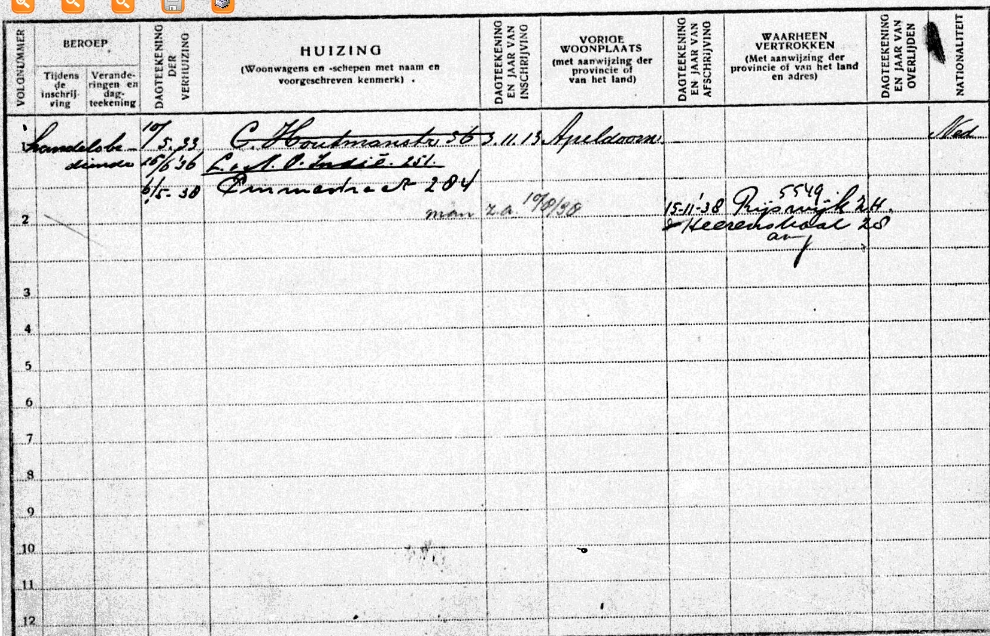 VOLGNUMMER
BEROEP
Tijdens de inschrijving
Verande-ringen en dag-teekening
DAGTEEKENING DER VERHUIZING
HUIZING
(Woonwagens en -schepen met naam en
voorgeschreven kenmerk)
DAGTEEKENING EN JAAR VAN INSCHRIJVING
VORIGE
WOONPLAATS
(met aanwijzing der
provincie of
van het land)
DAGTEEKENING EN JAAR VAN AFSCHRIJVING
WAARHEEN
VERTROKKEN
(Met aanwijzing der
provincie of van het land
en adres)
DAGTEEKENING EN JAAR VAN OVERLIJDEN
NATIONALITEIT
1 handelsbe- 10/5.33 C. Houtmanstr 56 3.11.13 Apeldoorn Ned
diende 15/6'36 L. v. N. O. Indië 251.
6/5-38 Emmastraat 284
5549
man z.a. 10/8/38 15-11-'38 Rijswijk Z.H.
2 Heerenstraat 28
3
4
5
6
7
8
9
10
11
12